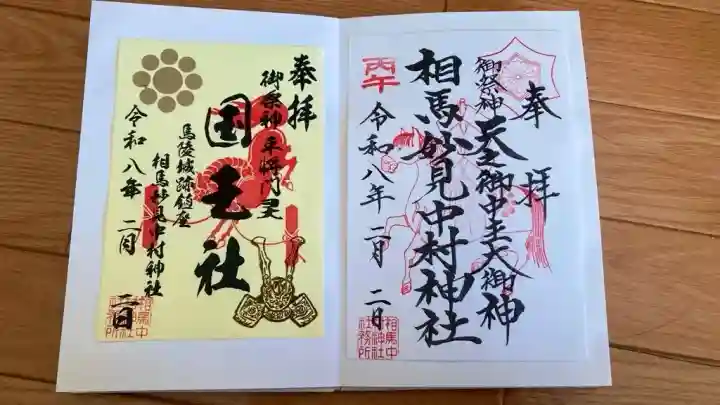 奉拝
御祭神天之御中主大御神
相馬妙見中村神社
丙午
令和八年二月二日
相馬中
村神社
社務所
奉拝
御祭神平将門
国王社
馬陵城跡鎮座
相馬妙見中村神社
令和八年二月二日
相馬中
村神社
社務所